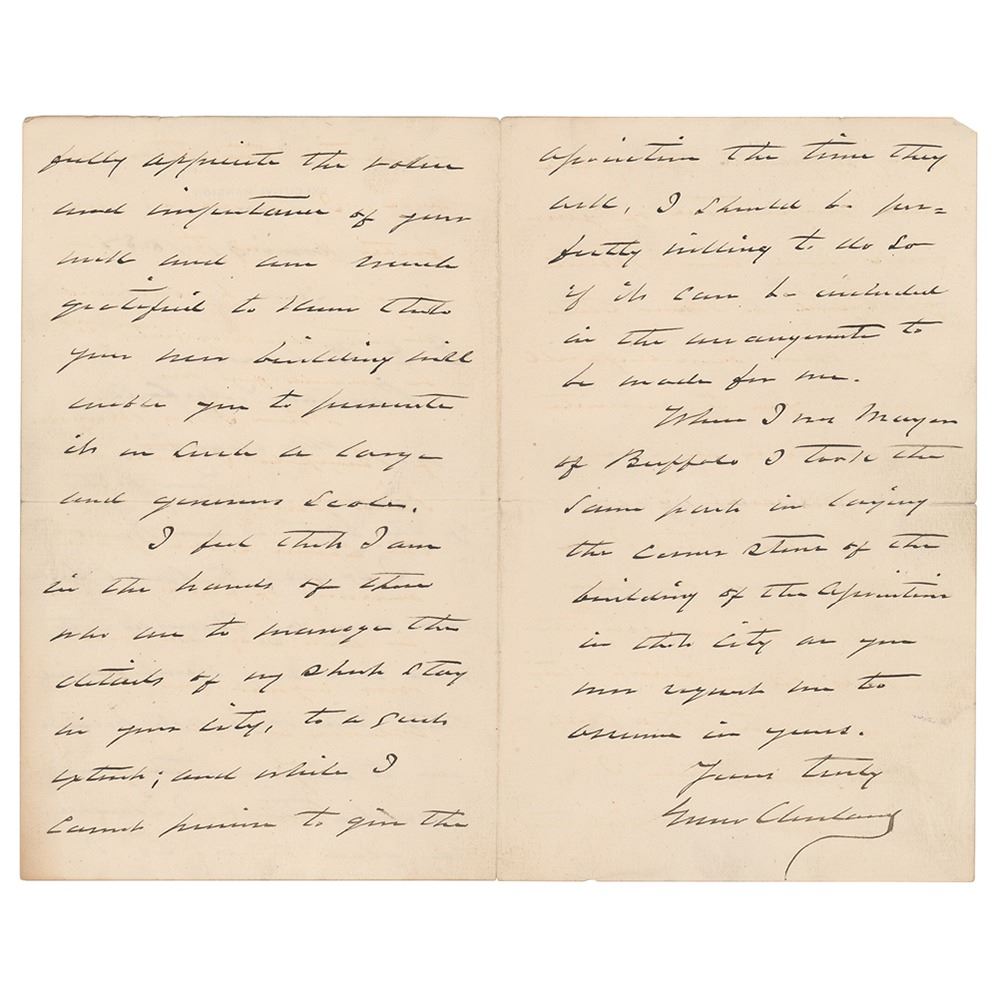 fully appreciate the value
and importance of your
work and am much
gratified to know that
your new building will
enable you to prosecute
it on such a large
and generous scale.
I feel that I am
in the hands of those
who are to manage the
details of my short stay
in your city, to a great
extent; and while I
cannot promise to give the
Association the time they
ask, I should be per=
fectly willing to do so
if it can be included
in the arrangements to
be made for me.
When I was Mayor
of Buffalo I took the
same part in laying
the corner stone of the
building of the Association
in that city as you
now request me to
assume in yours.
Yours truly
Grover Cleveland